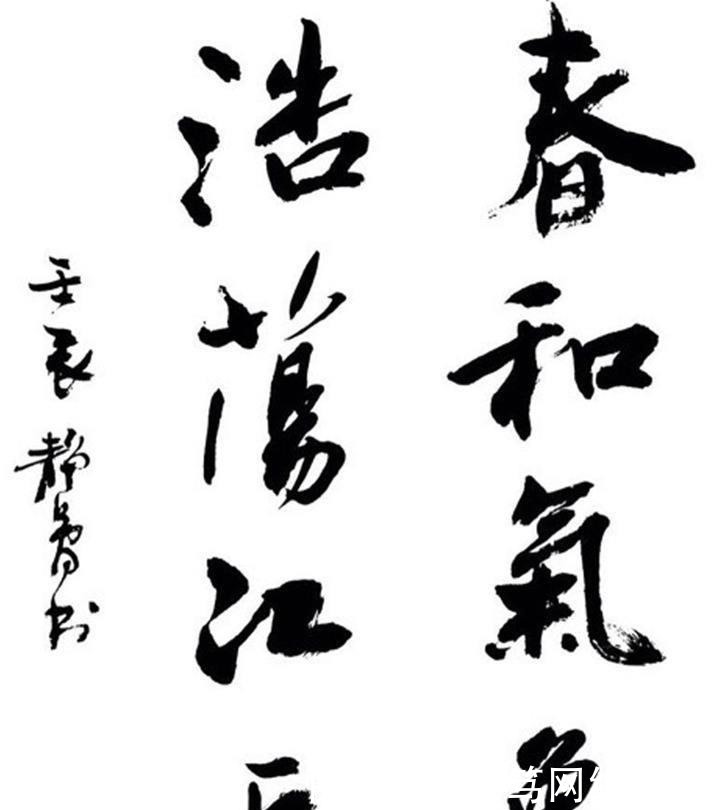 春和氣
浩蕩江
壬辰靜
书网